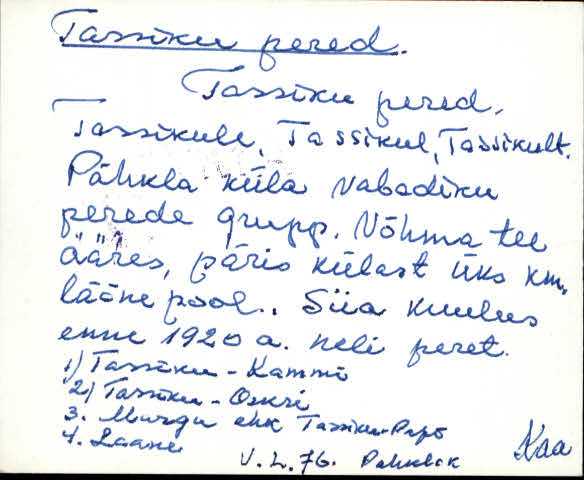 Tassiku pered.
Tassiku pered,
Tassikule, Tassikul, Tassikult.
Pähkla küla vabadiku
perede grupp. Võhma tee
ääres, päris külast üks km.
lääne pool.. Siia kuulus
enne 1920 a. neli peret.
1) Tassiku-Kammi
2) Tassiku-Oskri
3. Murgu ehk Tassiku-Papo
4. Laane
V. L. 76. Kaa